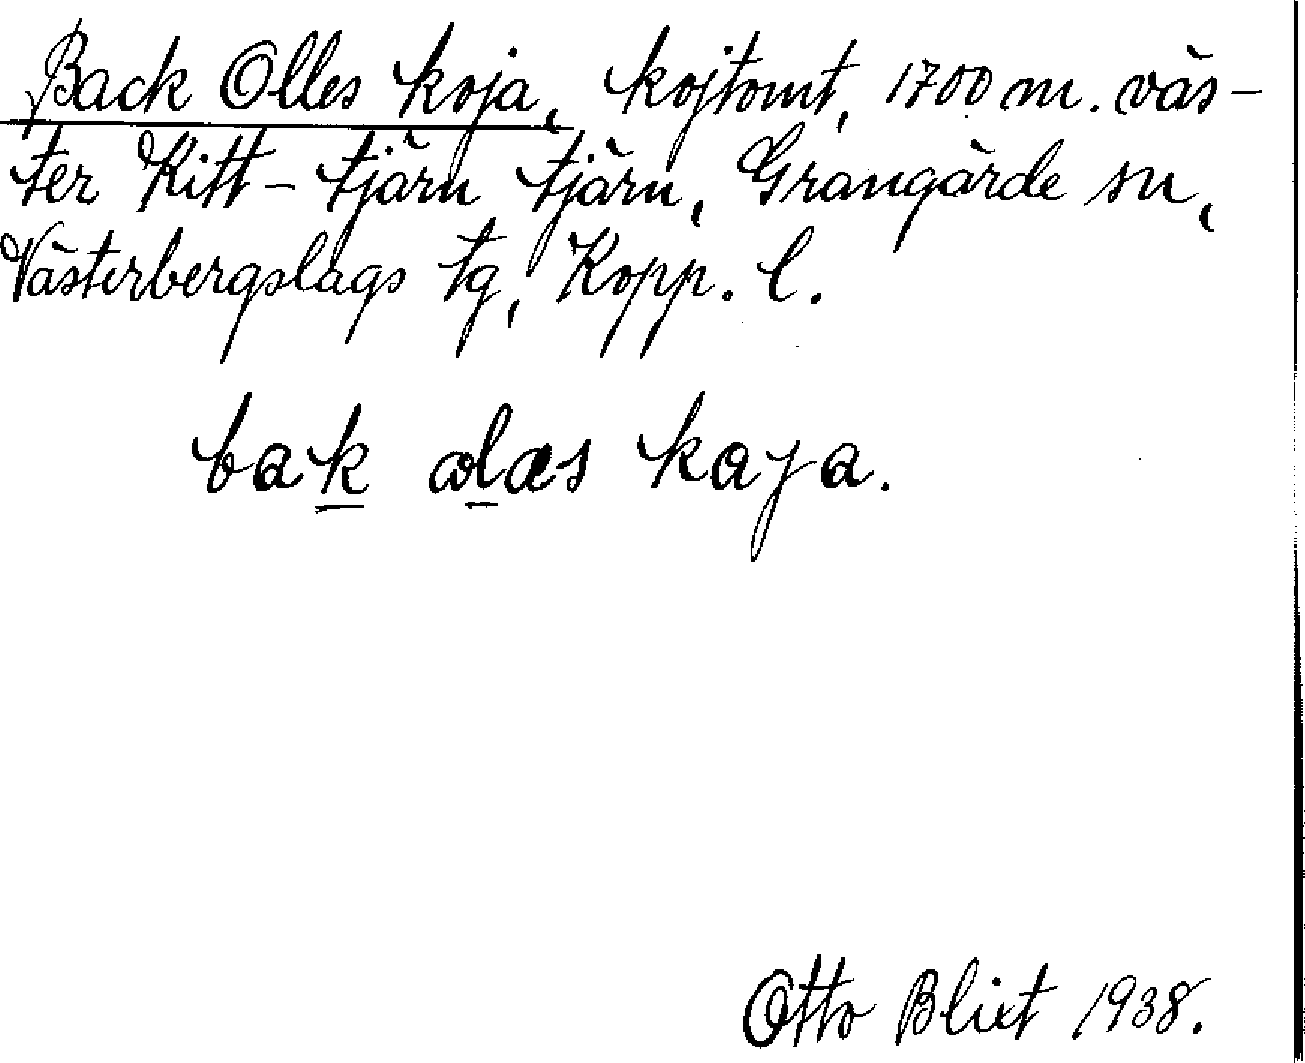 Back Olles koja, kojtomt, 1700 m. väs-
ter Kitt-tjärn, tjärn, Grangärde sn,
Västerbergslags tg, Kopp. l.
bak ωlæs kaja.
Otto Blixt 1938.